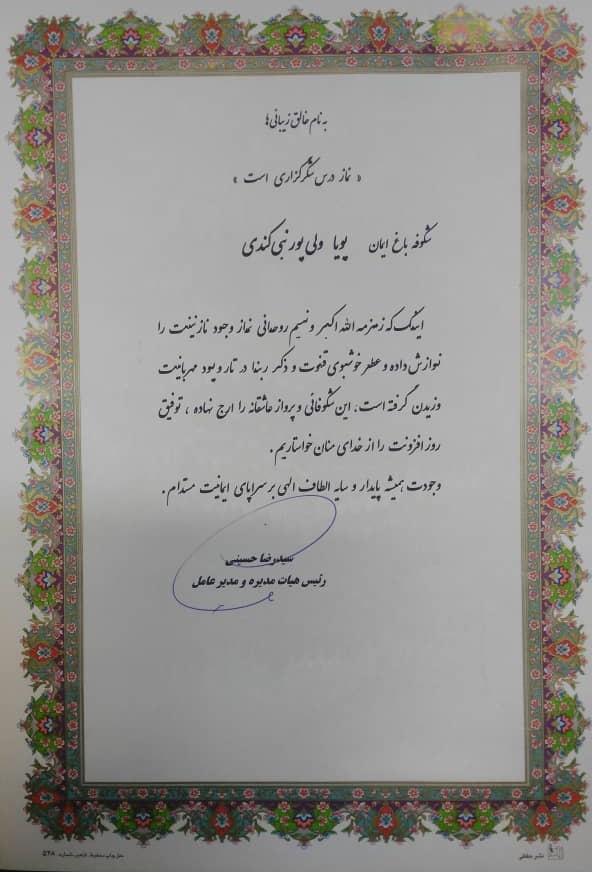 به نام خالق زیبائی‌ها
« نماز درس شکرگزاری است »
شکوفه باغ ایمان پویا ولی پور نبی کندی
اینک که زمزمه الله اکبر و نسیم روحانی نماز وجود نازنینت را
نوازش داده و عطر خوشبوی قنوت و ذکر ربنا در تار و پود مهربانیت
وزیدن گرفته است، این شکوفائی و پرواز عاشقانه را ارج نهاده ، توفیق
روز افزونت را از خدای منان خواستاریم .
وجودت همیشه پایدار و سایه الطاف الهی بر سراپای ایمانیت مستدام .
سیدرضا حسینی
رئیس هیات مدیره و مدیر عامل
حق چاپ محفوظ شماره ۵۴۸
نشر حقانی